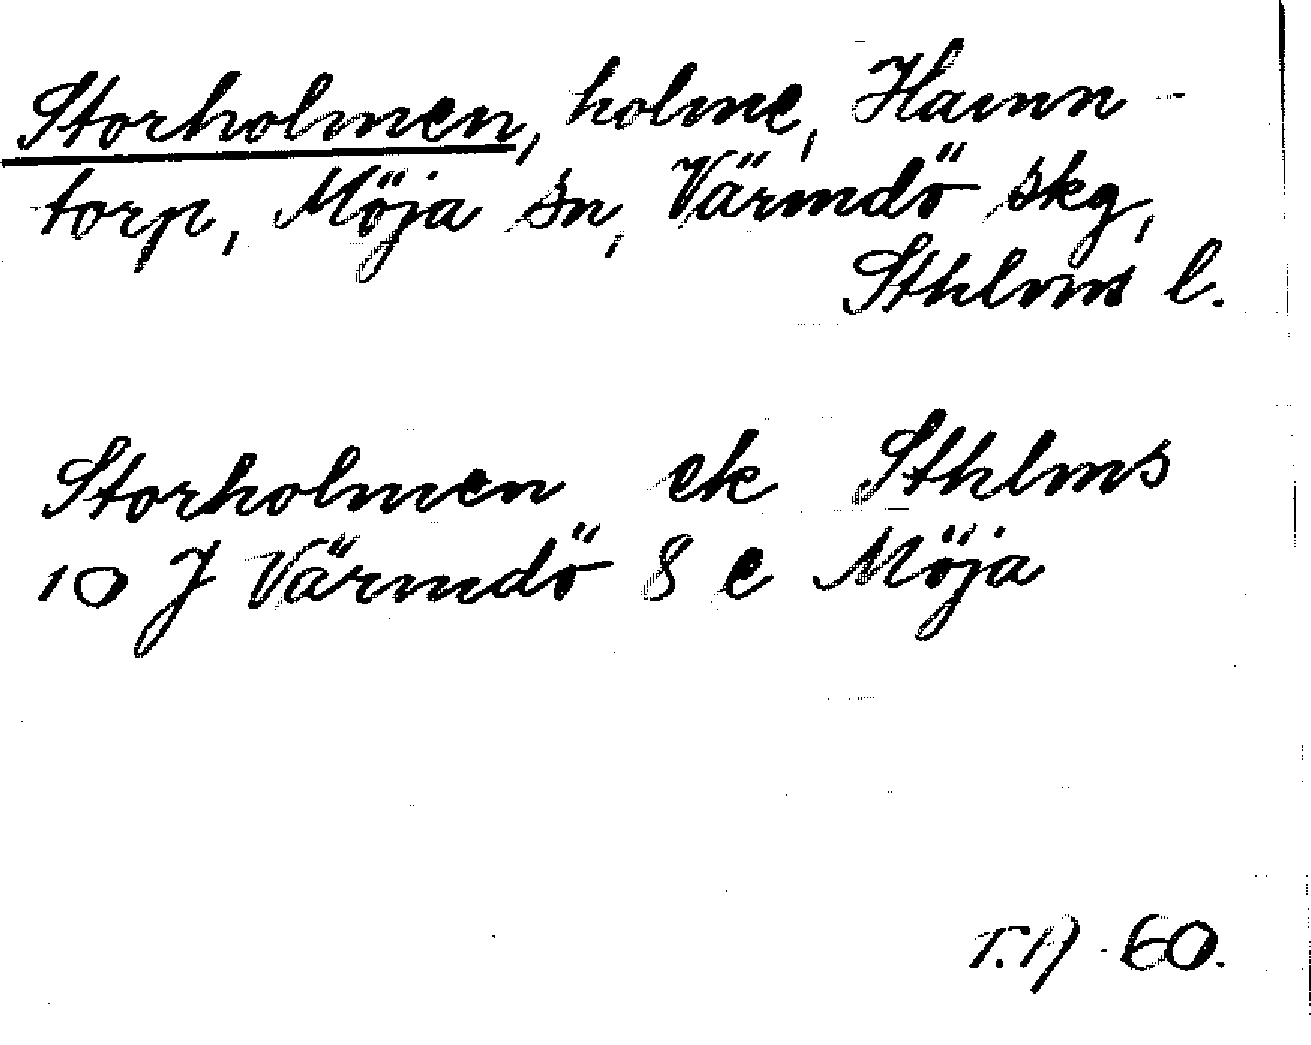 Storholmen, holme, Hamn-
torp, Möja sn, Värmdö skg,
Sthlms l.
Storholmen ek Sthlms
10 J Värmdö 8 e Möja
T.A -60.